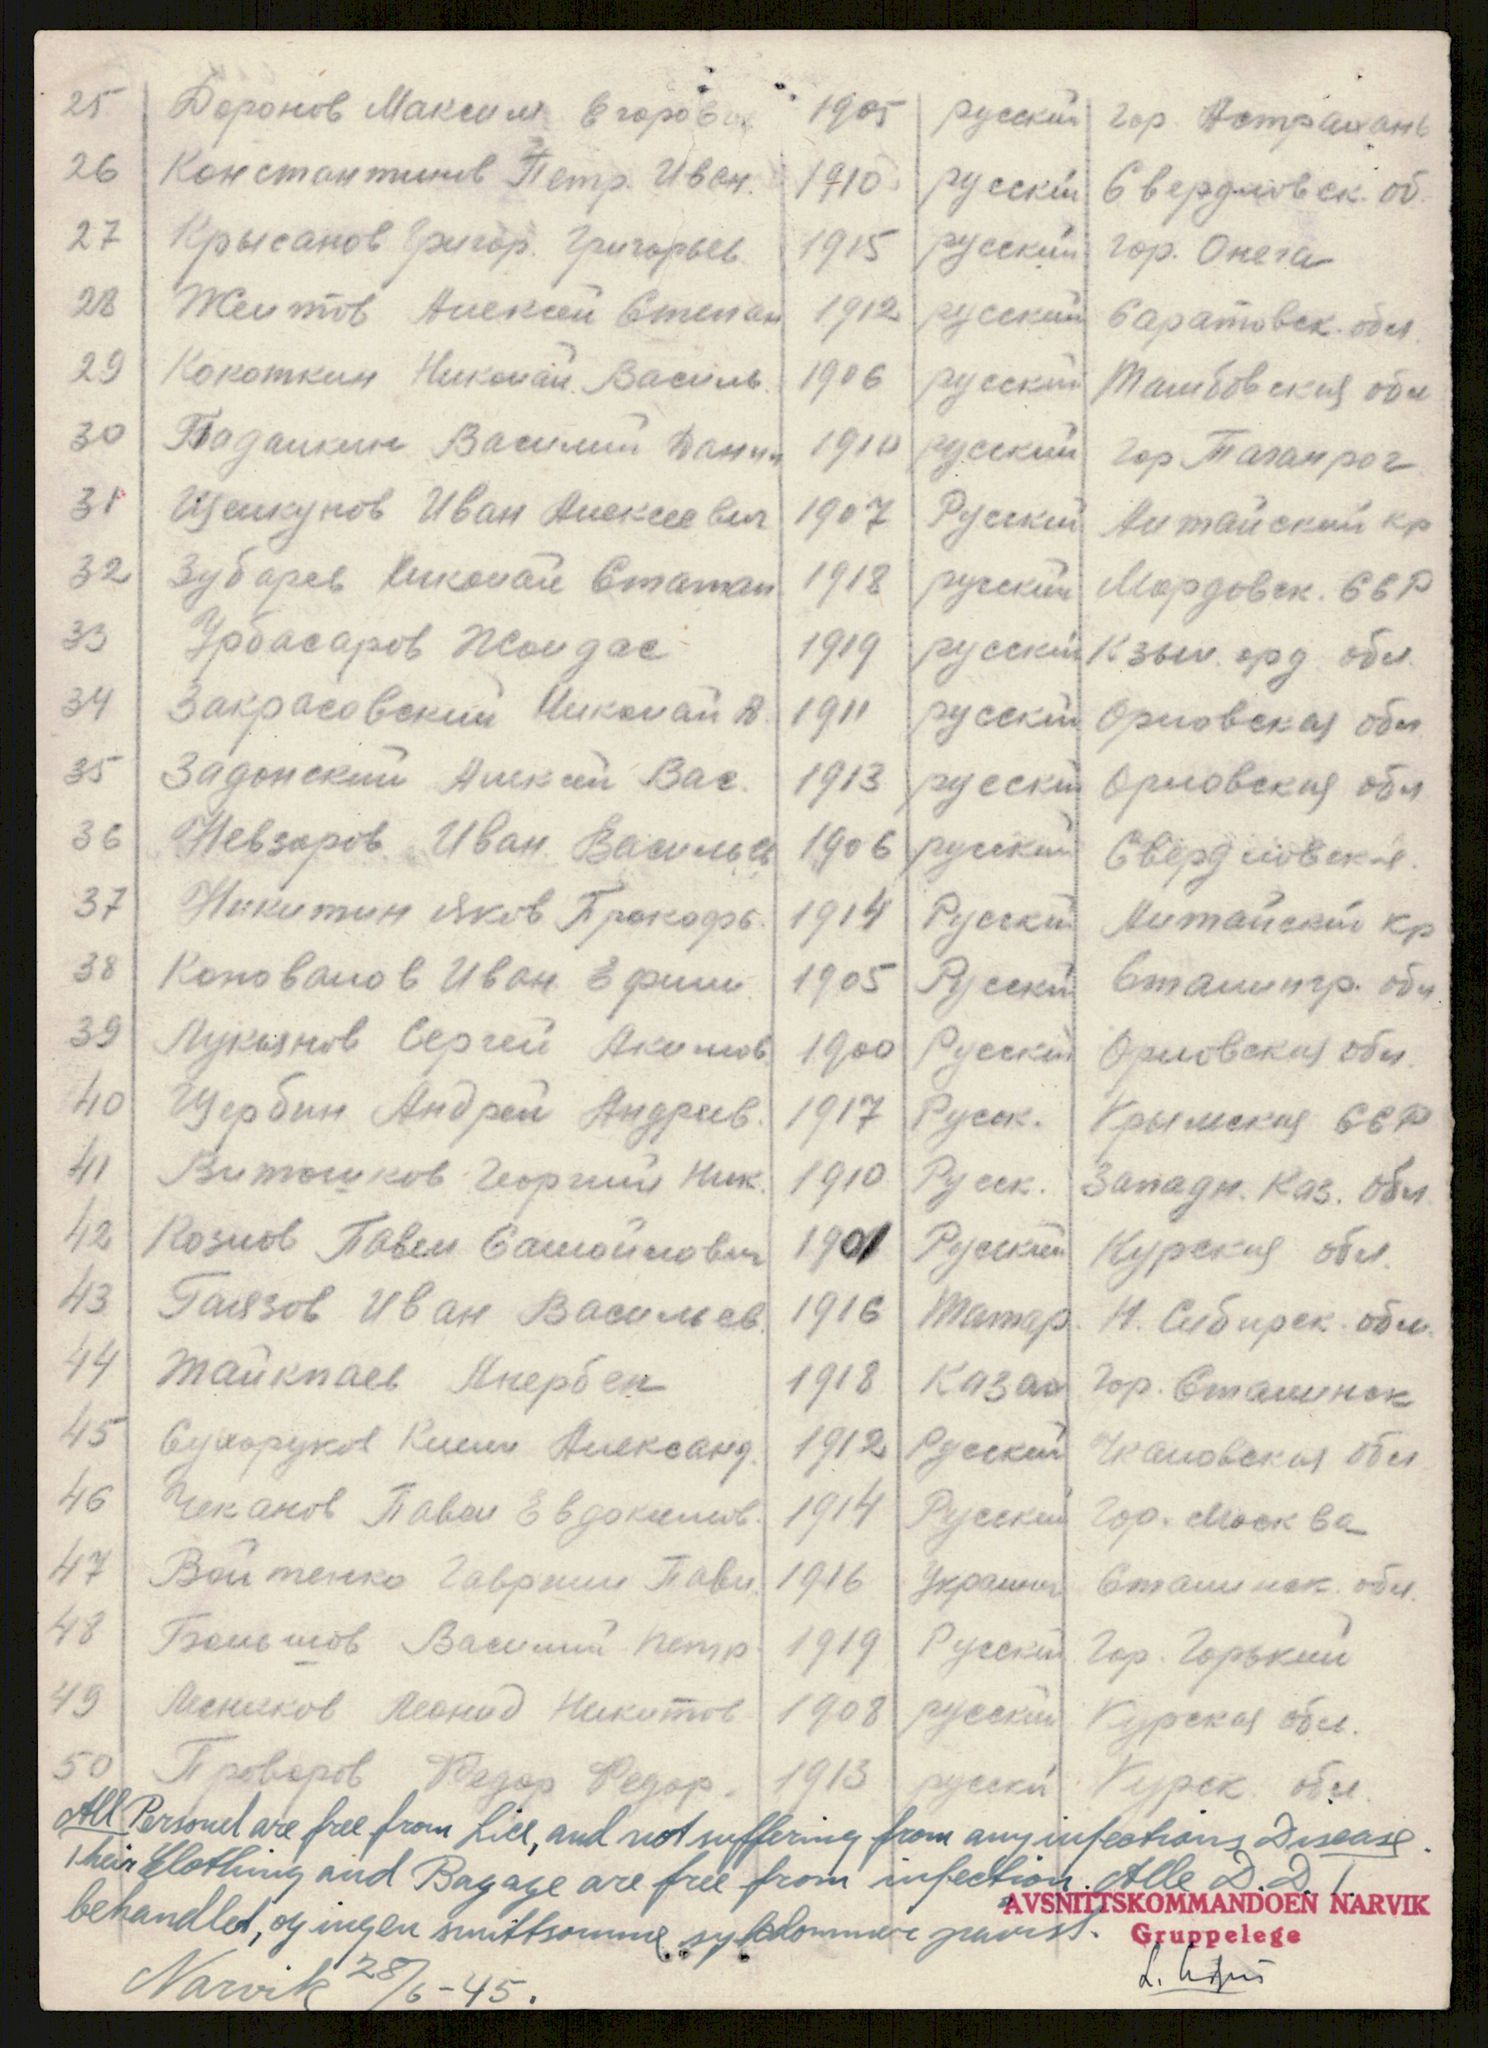 25 Доронов Максим Егоров 1905 русский гор. Астрахань
26 Константинов Петр. Иван. 1910 русскій Свердловск. об.
27 Крысанов Григор. Григорьев 1915 русский гор. Онега
28 Желтов Алексей Степан 1912 русский Саратовск. обл.
29 Кокоткин Николай Василь. 1906 русский Тамбовская обл
30 Падалкин Василий Данил 1910 русский гор Таганрог
31 Щелкунов Иван Алексеевич 1907 Русский Алтайский кр
32 Зубарев Николай 1918 русский Мордовск. ССР
33 Урбасаров Жолдас 1919 русский Кзыл. орд. обл.
34 Закрасовский Николай В. 1911 русский Орловская обл
35 Задонский Алексей Вас. 1913 русский Орловская обл
36 Невзоров Иван Васильев 1906 русский Свердловская.
37 Никитин Яков Прокофь. 1914 Русский Алтайский кр
38 Коновалов Иван Ефим. 1905 Русский Сталингр. обл
39 Лукьянов Сергей Акимов. 1900 Русский Орловская обл.
40 Щербин Андрей Андреев. 1917 Русск. Крымская ССР
41 Витошков Георгий Ник. 1910 Русск. Западн. Каз. обл
42 Козлов Павел Самойлович 1901 Русский Курская обл.
43 Галязов Иван Васильев. 1916 Татар. Н. Сибирск. обл.
44 Тайкпаев Акербек 1918 Казах гор. Сталинск
45 Сухоруков Клим Александ. 1912 Русский Чкаловская обл
46 Чеканов Павел Евдокимов. 1914 Русский гор. Москва
47 Войтенко Гаврил Павл. 1916 Украин Сталинск. обл.
48 Большов Василий Петр 1919 Русский гор. Горький
49 Лесников Леонид Никитов 1908 русский Курская обл.
50 Проворов Федор Федор. 1913 русский Курск. обл.
All Personel are free from Lice, and not suffering from any infections Disease.
Their Clothing and Bagage are free from infection. Alle D.D.T.
behandlet, og ingen smittsomme sykdommer påvist.
AVSNITTSKOMMANDOEN NARVIK
Gruppelege
Narvik 28/6-45.